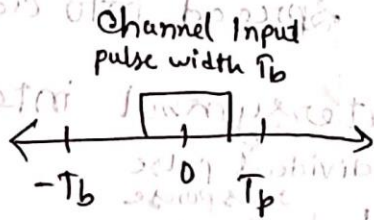 Channel Input
pulse width Tb
-Tb 0 Tp